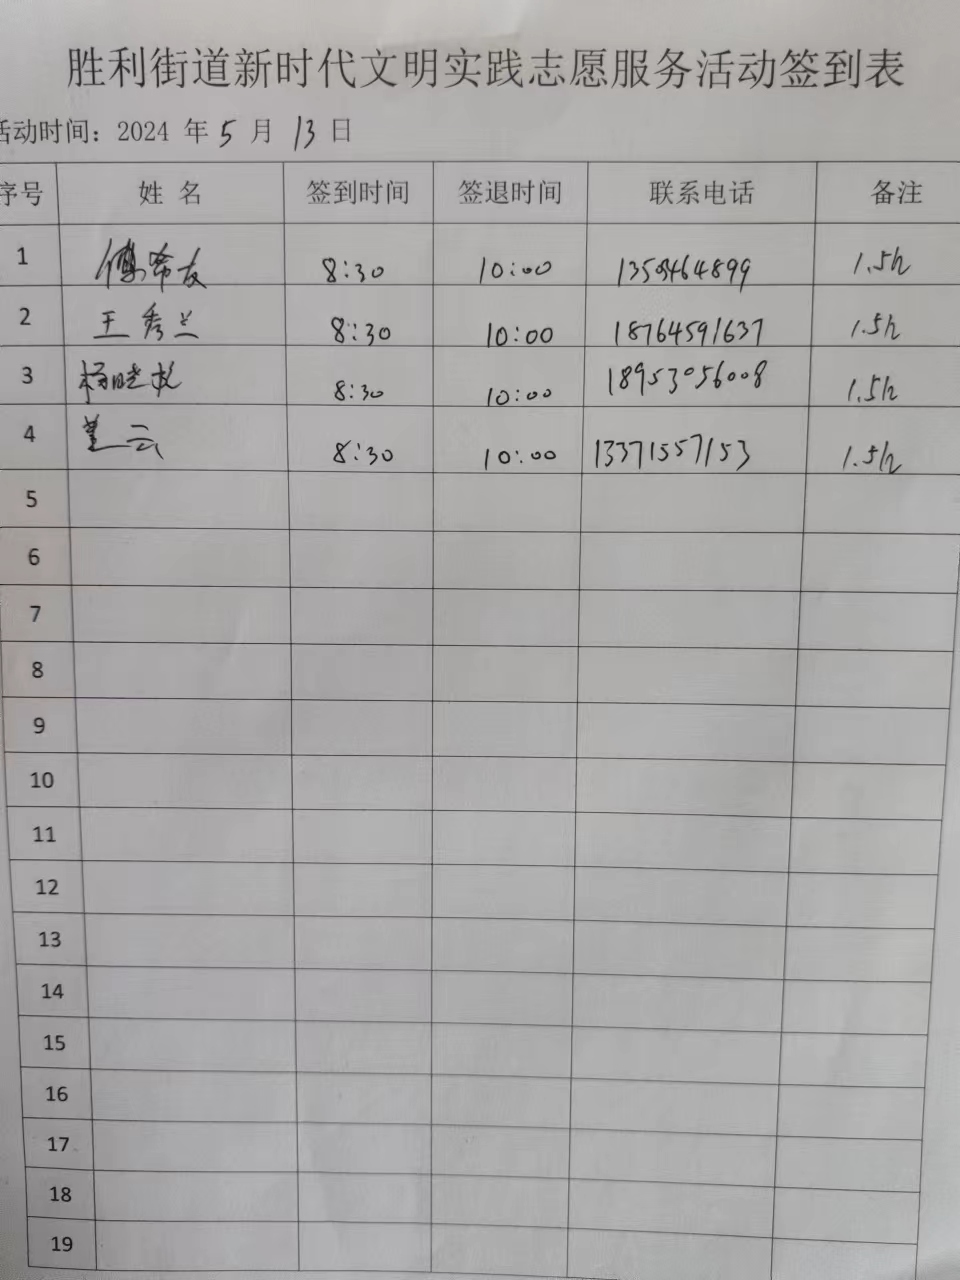 胜利街道新时代文明实践志愿服务活动签到表
活动时间：2024 年 5 月 13 日
序号 姓 名 签到时间 签退时间 联系电话 备注
1 傅希友 8:30 10:00 1.5h
2 王秀兰 8:30 10:00 18764591637 1.5h
3 杨晓 8:30 10:00 18953056008 1.5h
4 董云 8:30 10:00 13371557153 1.5h
5
6
7
8
9
10
11
12
13
14
15
16
17
18
19